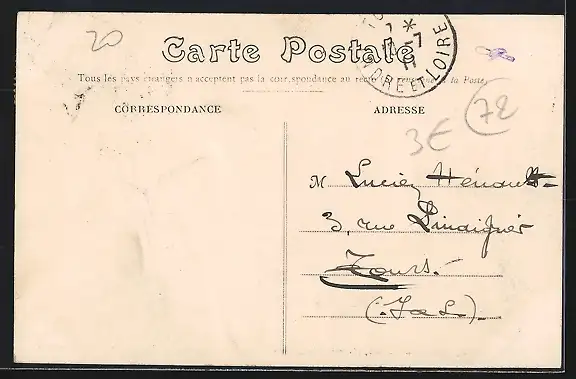 20
Carte Postale
Tous les pays étrangers n'acceptent pas la correspondance au recto (se renseigner à la Poste.
CORRESPONDANCE
ADRESSE
7 *
17-7
11
INDRE ET LOIRE
72
3€
M Lucien Hénault
3, rue Pinaigrier
Tours.
(I. & L.).